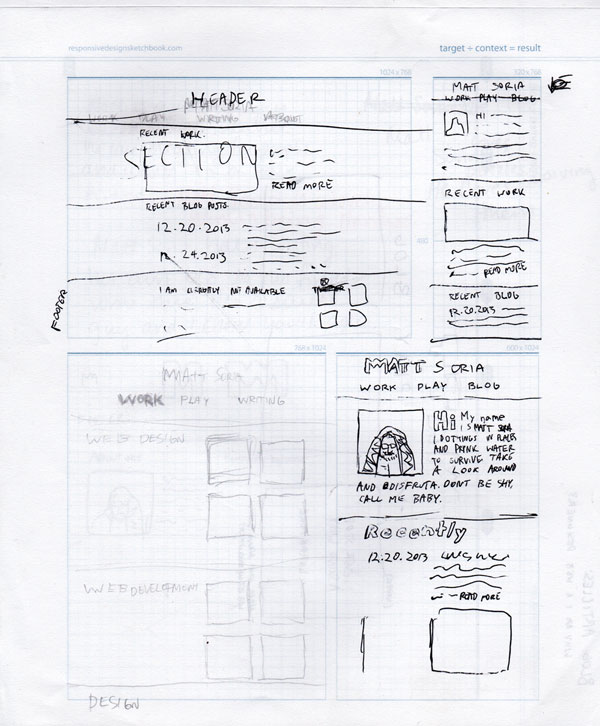 responsivedesignsketchbook.com
target + context = result
1024 x 768
HEADER
MATT SORIA
WORK PLAY WRITING ABOUT
RECENT WORK.
SECTION
READ MORE
RECENT BLOG POSTS
12.20.2013
12.24.2013
I AM CURRENTLY NOT AVAILABLE
FOOTER
320 x 768
MATT SORIA
WORK PLAY BLOG
HI
480
RECENT WORK
READ MORE
RECENT BLOG
12.20.2013
768 x 1024
MATT SORIA
WORK PLAY WRITING
WEB DESIGN
WEB DEVELOPMENT
DESIGN
600 x 1024
MATT SORIA
WORK PLAY BLOG
Hi My name
IS MATT SORIA
I DO THINGS IN PLACES
AND DRINK WATER
TO SURVIVE TAKE
A LOOK AROUND
AND DISFRUTA. DONT BE SHY,
CALL ME BABY.
Recently
12.20.2013
READ MORE